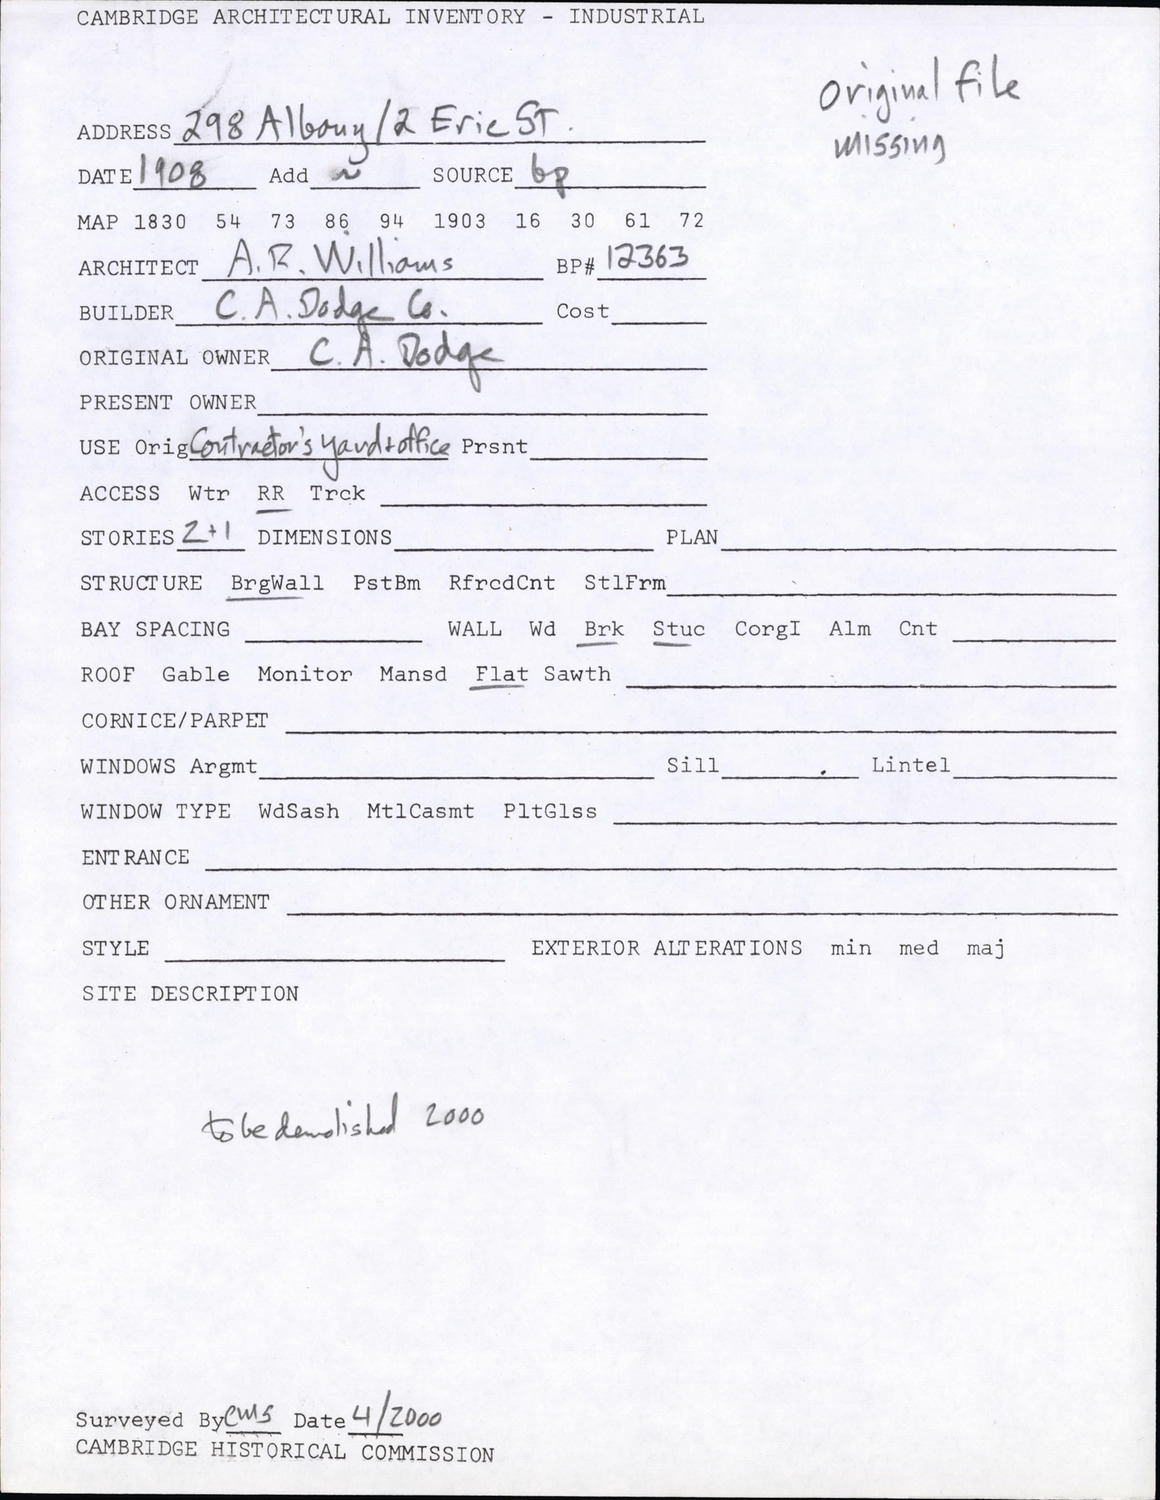 CAMBRIDGE ARCHITECTURAL INVENTORY - INDUSTRIAL
Original file
missing
ADDRESS 298 Albany/2 Erie ST.
DATE 1908 Add ~ SOURCE bp
MAP 1830 54 73 86 94 1903 16 30 61 72
ARCHITECT A.R. Williams BP# 12363
BUILDER C.A. Dodge Co. Cost
ORIGINAL OWNER C.A. Dodge
PRESENT OWNER
USE Orig Contractor's yard + office Prsnt
ACCESS Wtr RR Trck
STORIES 2+1 DIMENSIONS PLAN
STRUCTURE BrgWall PstBm RfrcdCnt StlFrm
BAY SPACING WALL Wd Brk Stuc CorgI Alm Cnt
ROOF Gable Monitor Mansd Flat Sawth
CORNICE/PARPET
WINDOWS Argmt Sill Lintel
WINDOW TYPE WdSash MtlCasmt PltGlss
ENTRANCE
OTHER ORNAMENT
STYLE EXTERIOR ALTERATIONS min med maj
SITE DESCRIPTION
to be demolished 2000
Surveyed By CMS Date 4/2000
CAMBRIDGE HISTORICAL COMMISSION